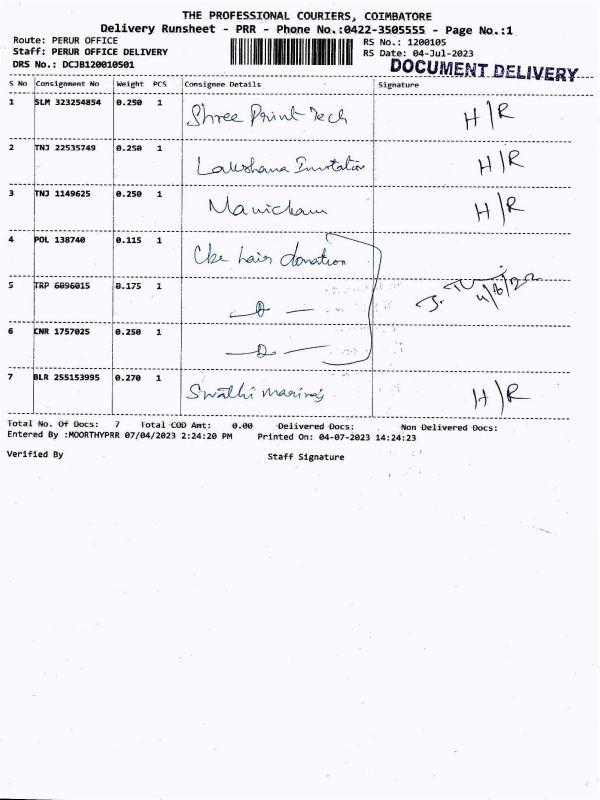 THE PROFESSIONAL COURIERS, COIMBATORE
Delivery Runsheet - PRR - Phone No.:0422-3505555 - Page No.:1
Route: PERUR OFFICE RS No.: 1200105
Staff: PERUR OFFICE DELIVERY RS Date: 04-Jul-2023
DRS No.: DCJB120010501 DOCUMENT DELIVERY
S No Consignment No Weight PCS Consignee Details Signature
1 SLM 323254854 0.250 1 Shree Print Tech H/R
2 TNJ 22535749 0.250 1 Lakshana Invitation H/R
3 TNJ 1149625 0.250 1 Manickam H/R
4 POL 138740 0.115 1 Cbe hair donation
5 TRP 6096015 8.175 1
6 CNR 1757025 0.250 1
7 BLR 255153995 0.270 1 Swathi Mariraj H/R
Total No. Of Docs: 7 Total COD Amt: 0.00 Delivered Docs: Non Delivered Docs:
Entered By :MOORTHYPRR 07/04/2023 2:24:20 PM Printed On: 04-07-2023 14:24:23
Verified By Staff Signature